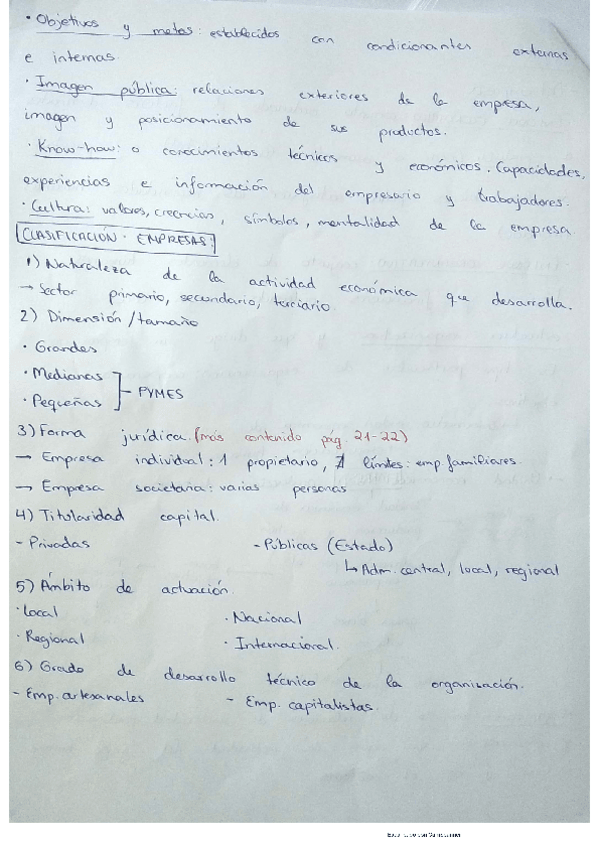 · Objetivos y metas: establecidos con condicionantes externas
e internas.
· Imagen pública: relaciones exteriores de la empresa,
imagen y posicionamiento de sus productos.
· Know-how: o conocimientos técnicos y económicos. Capacidades,
experiencias e información del empresario y trabajadores.
· Cultura: valores, creencias, símbolos, mentalidad de la empresa
CLASIFICACIÓN · EMPRESAS:
1) Naturaleza de la actividad económica que desarrolla.
→ Sector primario, secundario, terciario
2) Dimensión/tamaño
· Grandes
· Medianas
· Pequeñas
PYMES
3) Forma jurídica. (más contenido pág. 21-22)
→ Empresa individual: 1 propietario, ∄ límites: emp. familiares.
→ Empresa societaria: varias personas
4) Titularidad capital.
- Privadas - Públicas (Estado)
↳ Adm. central, local, regional
5) Ámbito de actuación.
· Local · Nacional
· Regional · Internacional.
6) Grado de desarrollo técnico de la organización.
- Emp. artesanales - Emp. capitalistas.